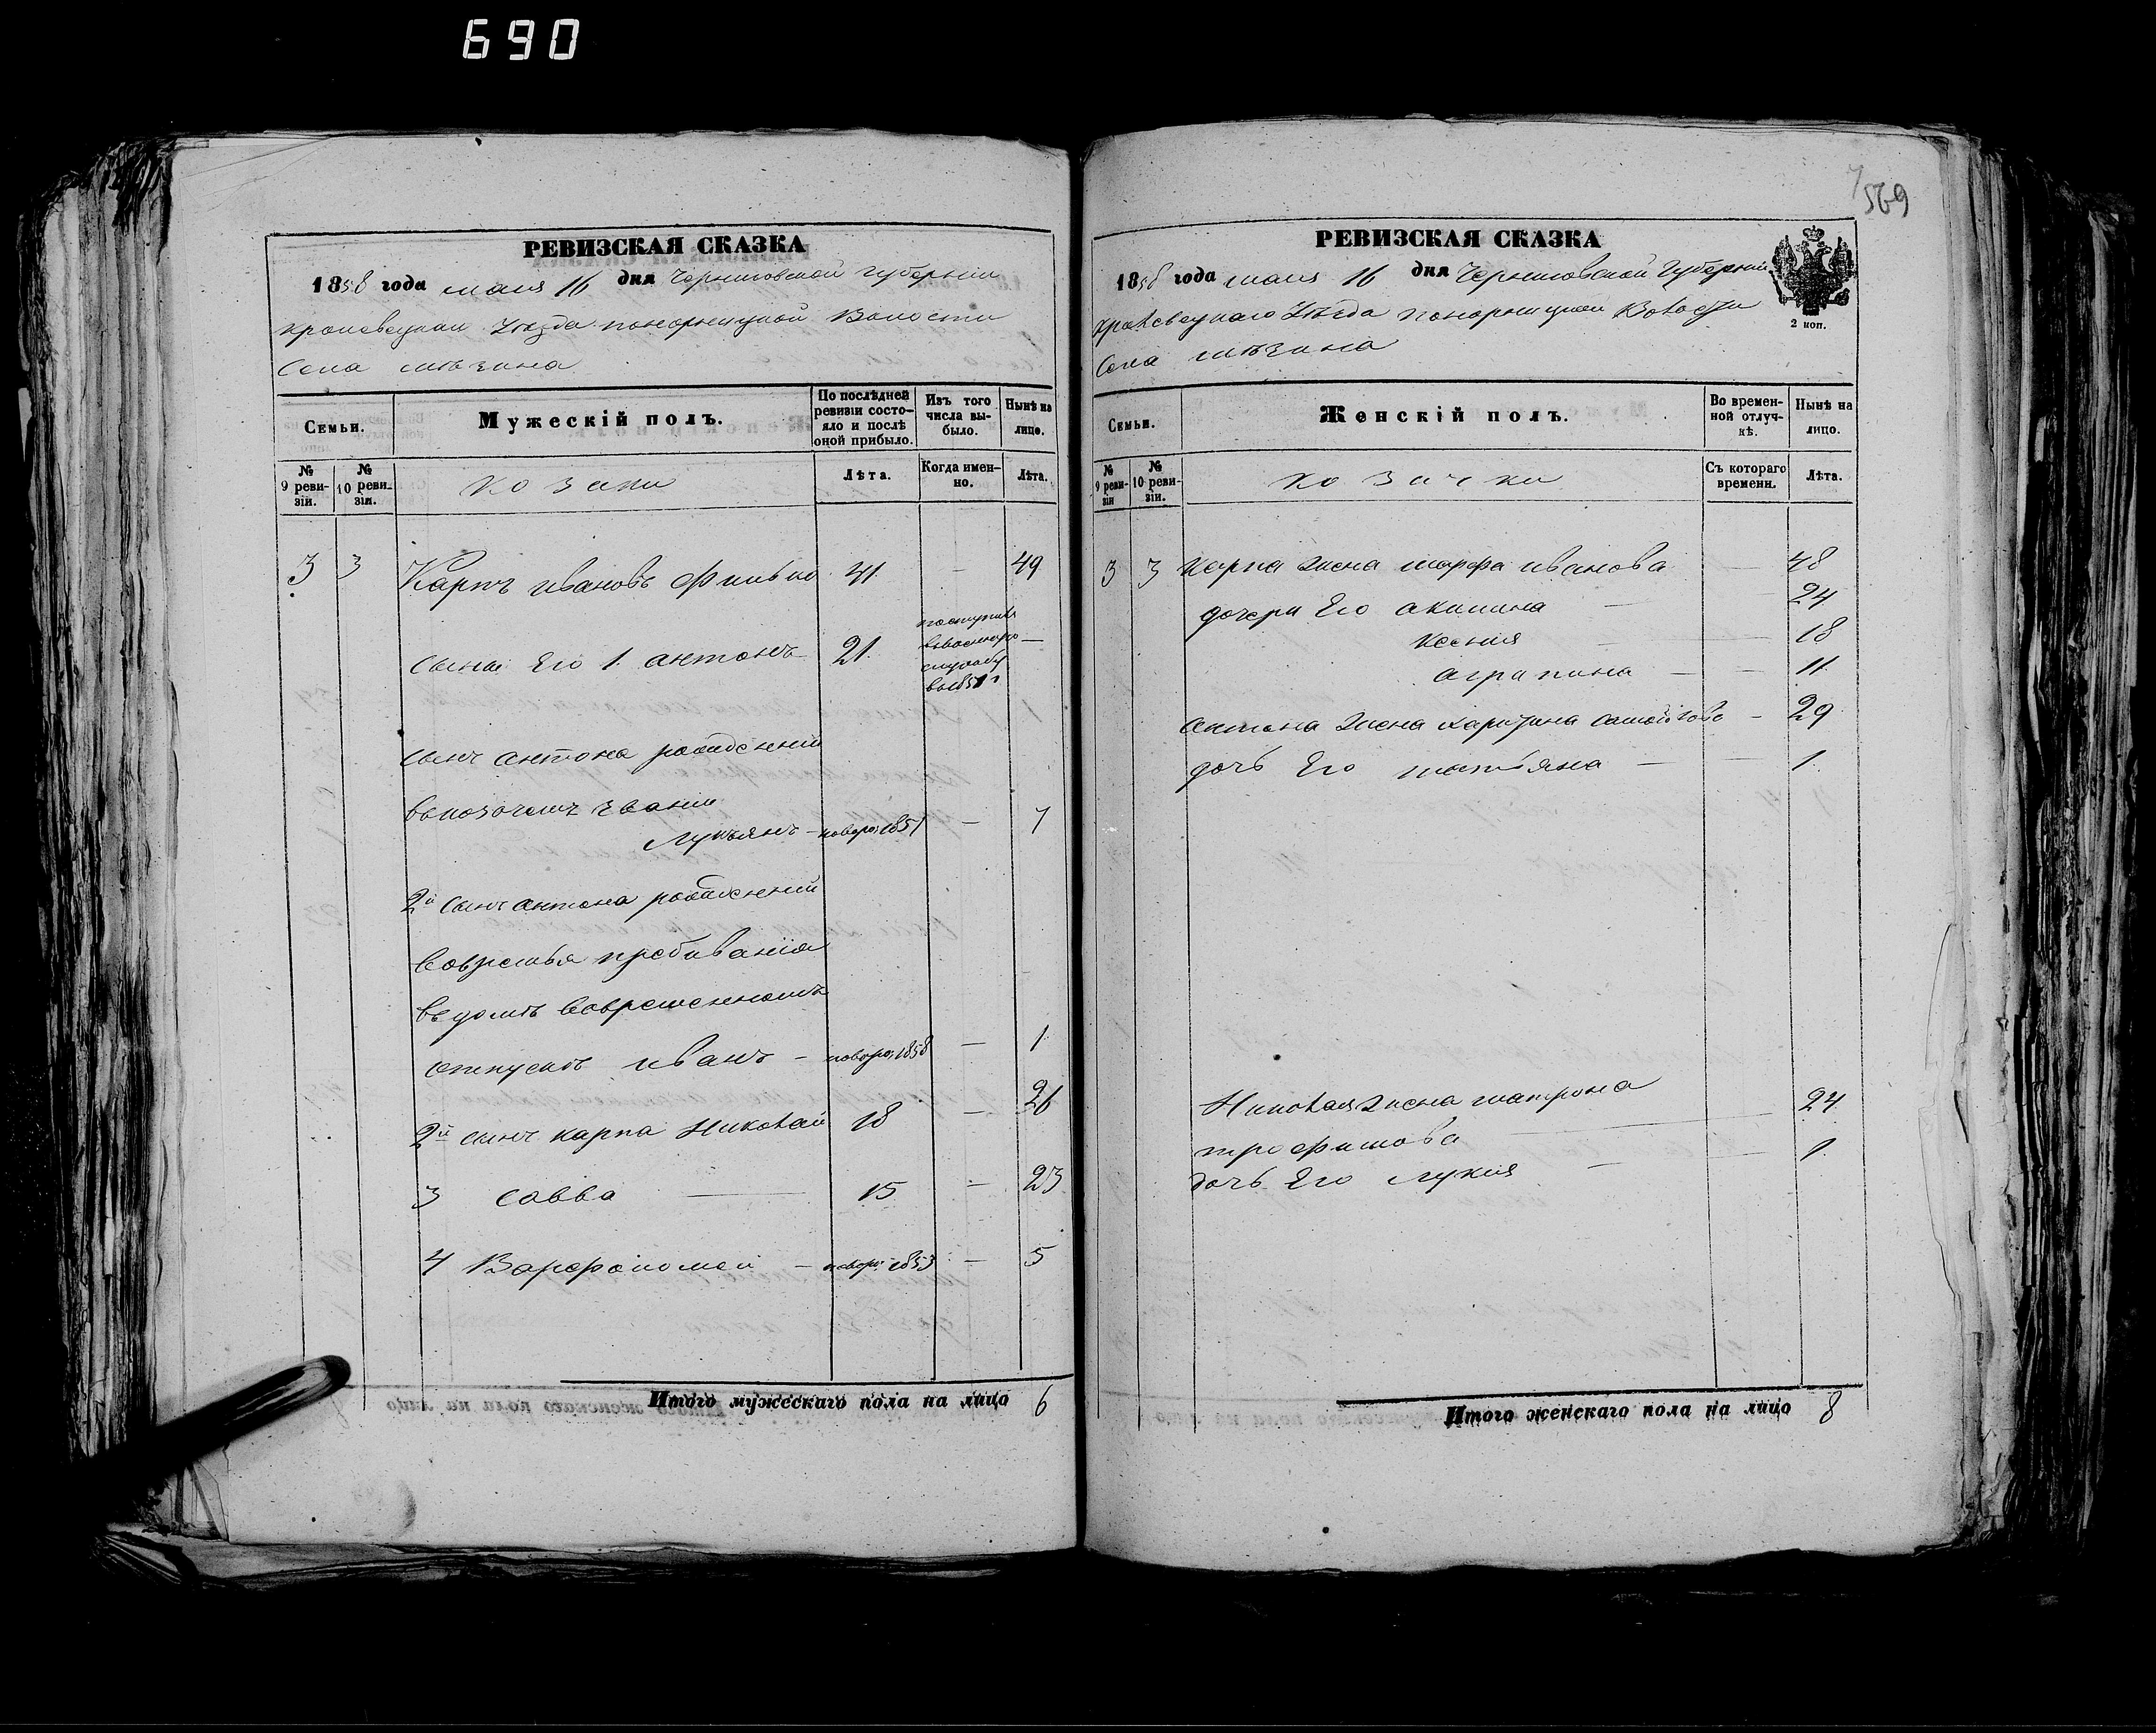 690
РЕВИЗСКАЯ СКАЗКА
1858 года мая 16 дня Черниговской губерніи
кролевецкаи Уѣзда понорницкой Волости
Села мѣзина
Семьи.
Мужескій полъ.
По послѣдней ревизіи состояло и послѣ оной прибыло.
Изъ того числа выбыло.
Нынѣ на лицо.
№ 9 ревизіи.
№ 10 ревизіи.
козаки
Лѣта.
Когда именно.
Лѣта.
3 3 Карпъ ивановъ 41 — 49
сыны Его 1. антонъ 21. поступилъ
ввоенную —
службу
в 1851 г
сынъ антона рожденній
въ козачемъ званіи
Лукъянъ — новоро: 1851 — 7
2й сынъ антона рожденній
вовремья пребиванія
въ домѣ вовременномъ
отпускѣ иванъ — новоро: 1858 — 1
2й сынъ карпа Николай 18 — 26
3 савва — 15 — 23
4 Варфоломей — новоро: 1853 — 5
Итого мужескаго пола на лицо 6
569
РЕВИЗСКАЯ СКАЗКА
1858 года мая 16 дня Черниговской Губерніи
кролевецкаго Уѣзда понорницкой Волости
Села мѣзина
2 коп.
Семьи.
Женскій полъ.
Во временной отлучкѣ.
Нынѣ на лицо.
№ 9 ревизіи
№ 10 ревизіи.
козачки
Съ котораго времени.
Лѣта.
3 3 карпа жена марфа иванова — 48
дочери Его акилина — 24
ксения — — 18
агрипина — — 11
антона жена харитина самойлова — 29
дочь Его татьяна — — 1
Николая жена матрона — 24
трофимова
дочь Его лукия — — 1
Итого женскаго пола на лицо 8